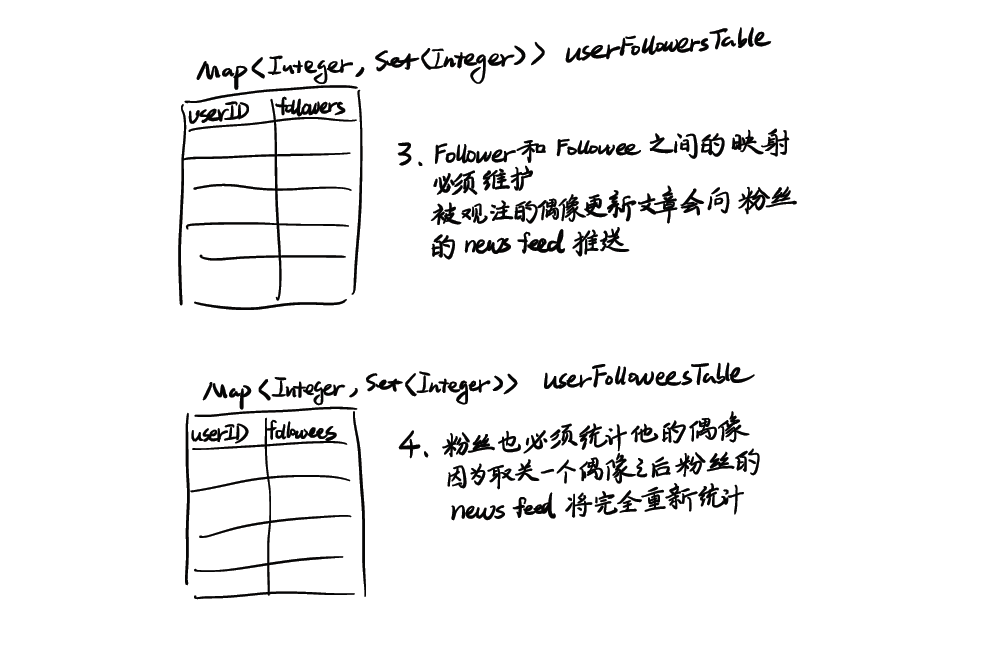 Map<Integer, Set<Integer>> userFollowersTable
userID followers
3、Follower和Followee之间的映射
必须维护
被观注的偶像更新文章会向粉丝
的news feed推送
Map<Integer, Set<Integer>> userFolloweesTable
userID followees
4、粉丝也必须统计他的偶像
因为取关一个偶像之后粉丝的
news feed将完全重新统计